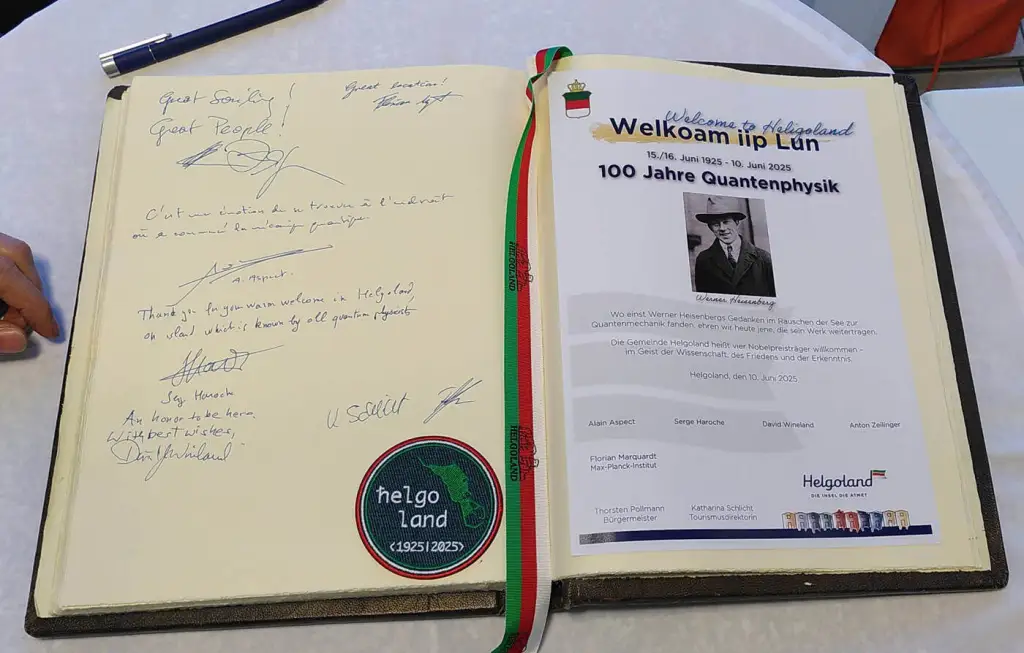 Great Smiling!
Great People!
Great location!
C'est une émotion de se trouver à l'endroit
où a commencé la mécanique quantique.
A. Aspect.
Thank you for your warm welcome in Helgoland,
an island which is known by all quantum physicists
Serge Haroche
An honor to be here.
With best wishes,
David J Wineland
K. Schlicht
helgo
land
<1925|2025>
HELGOLAND
HELGOLAND
Welcome to Heligoland
Welkoam iip Lun
15./16. Juni 1925 - 10. Juni 2025
100 Jahre Quantenphysik
Werner Heisenberg
Wo einst Werner Heisenbergs Gedanken im Rauschen der See zur
Quantenmechanik fanden, ehren wir heute jene, die sein Werk weitertragen.
Die Gemeinde Helgoland heißt vier Nobelpreisträger willkommen –
im Geist der Wissenschaft, des Friedens und der Erkenntnis.
Helgoland, den 10. Juni 2025
Alain Aspect Serge Haroche David Wineland Anton Zeilinger
Florian Marquardt
Max-Planck-Institut
Helgoland
DIE INSEL DIE ATMET
Thorsten Pollmann Katharina Schlicht
Bürgermeister Tourismusdirektorin